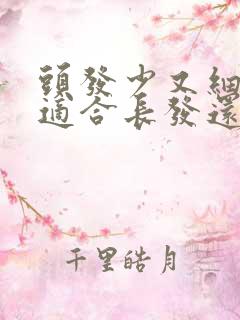 頭發少又細
適合長發還
千里皓月